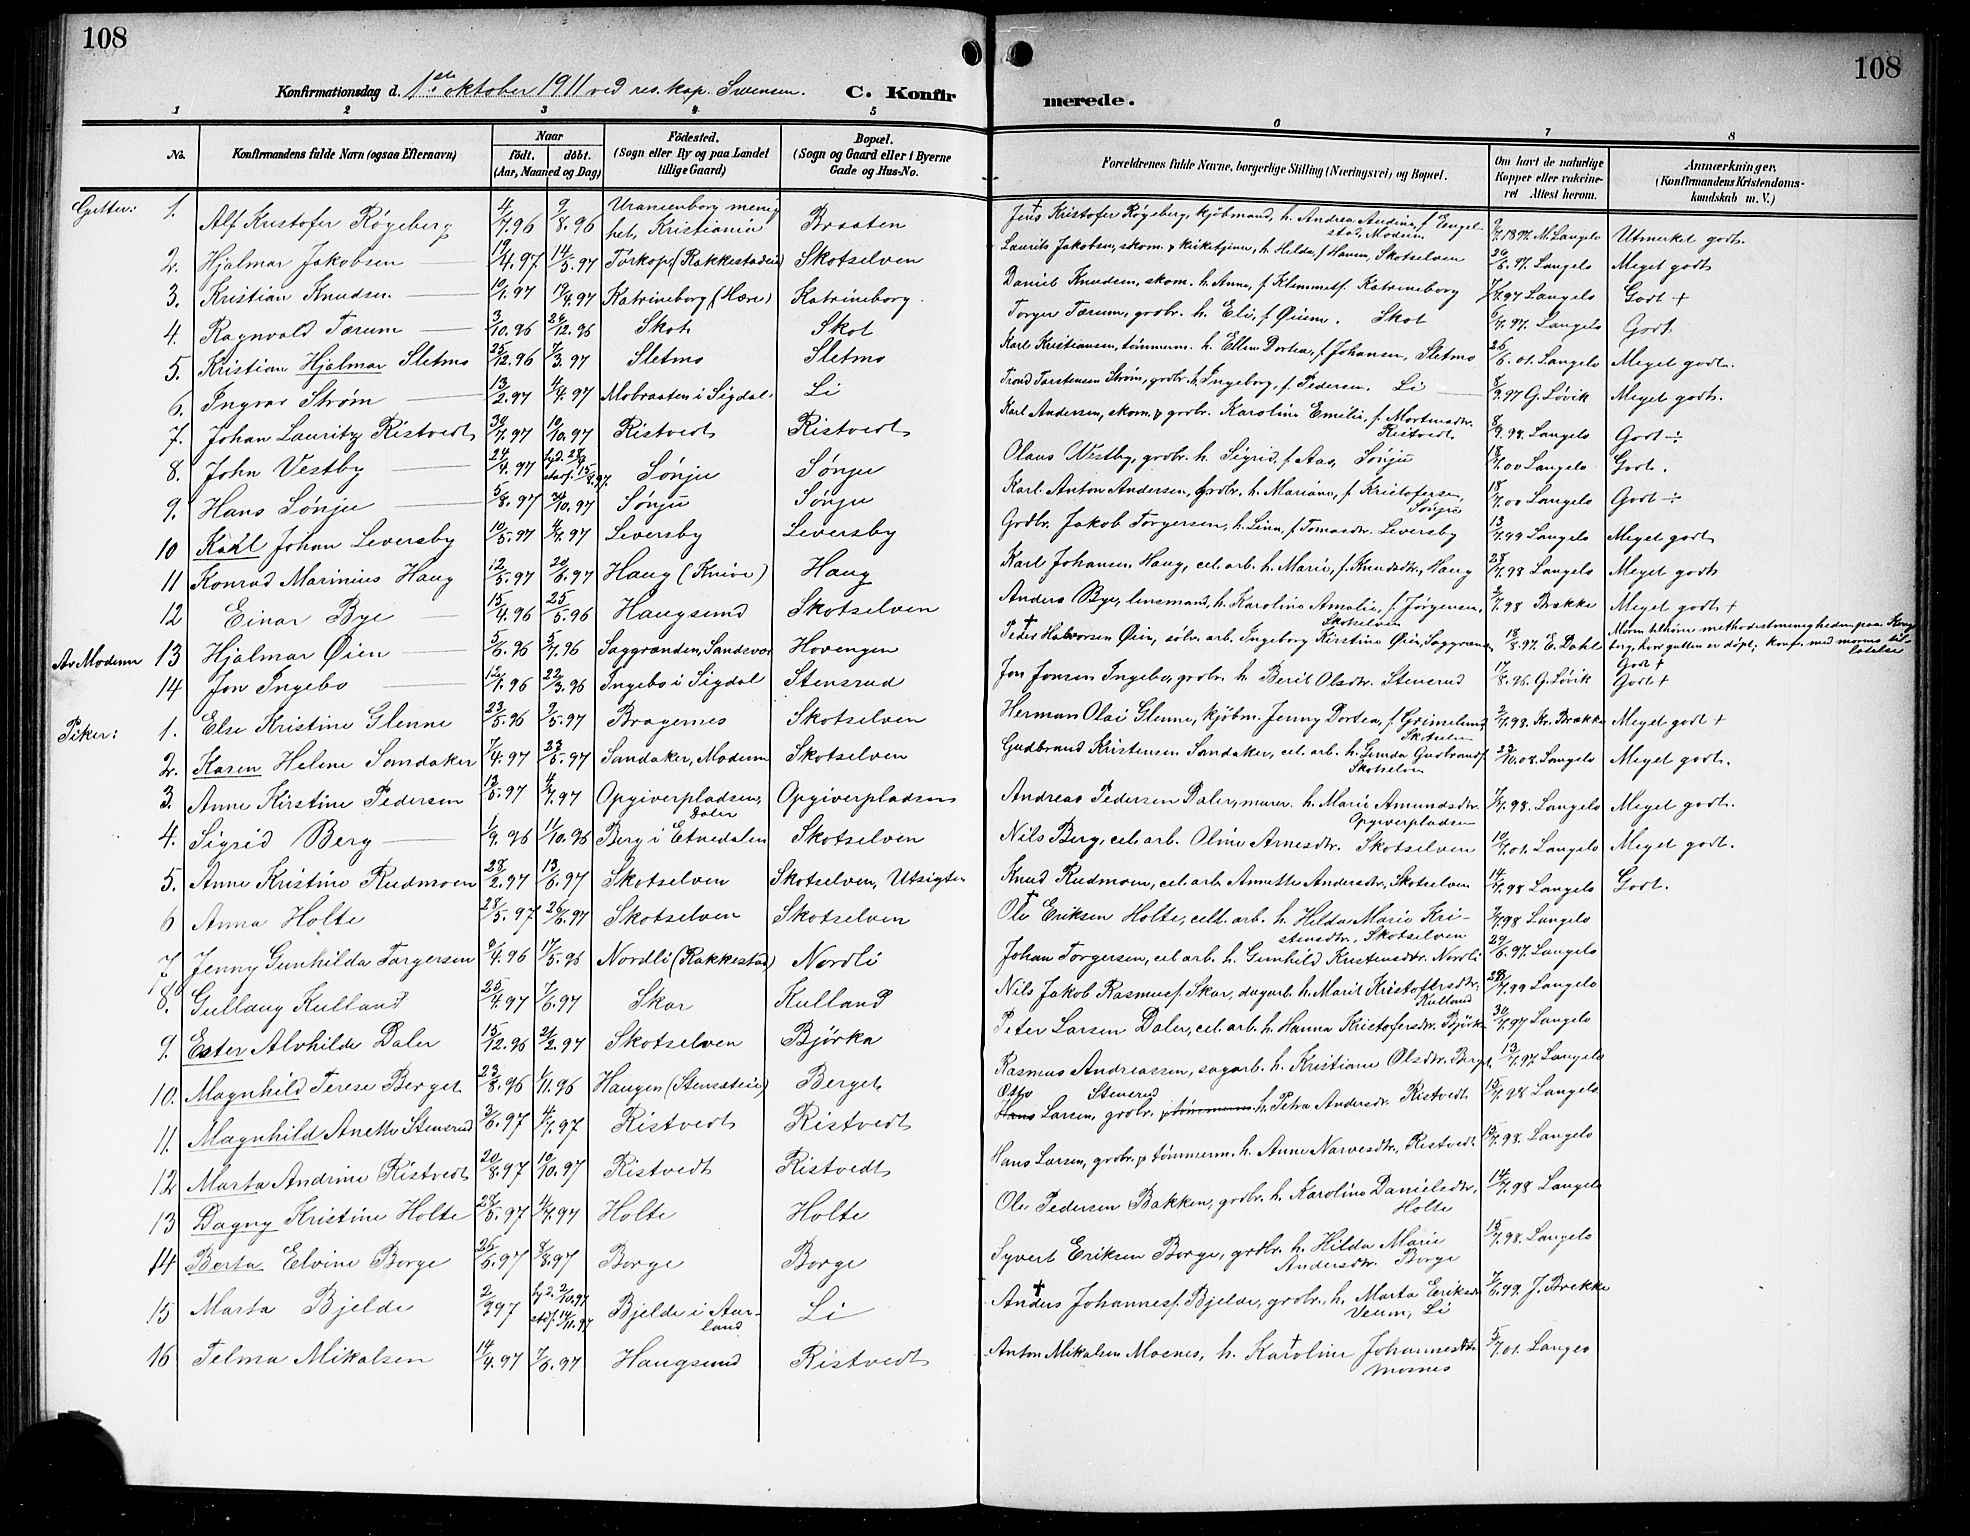 108
108
Konfirmationsdag d. 1ste oktober 1911 ved res. kap. Svensen. C. Konfirmerede.
1 2 3 4 5 6 7 8
No. Konfirmandens fulde Navn (ogsaa Efternavn) Naar født. døbt. (Aar, Maaned og Dag) Fødested. (Sogn eller By og paa Landet tillige Gaard) Bopæl. (Sogn og Gaard eller i Byerne Gade og Hus-No. Forældrenes fulde Navne, borgerlige Stilling (Næringsvei) og Bopæl. Om havt de naturlige Kopper eller vakcineret Attest herom. Anmærkninger, (Konfirmandens Kristendomskundskab m. V.)
Gutter: 1. Alf Kristofer Røgeberg 4/7.96 9/8.96 Uranienborg menighet, Kristiania Braaten Jens Kristofer Røgeberg, kjøbmand, h. Andrea Andrine, f. Engelstad, Modum 9/7.1897 N. Langelo Utmerket godt.
2. Hjalmar Jakobsen 19/4.97 14/5.97 Torkop (Rakkestadeie) Skotselven Laurits Jakobsen, skom. & kirketjener, h. Helda, f. Hansen, Skotselven 26/6.97. Langelo Meget godt
3. Kristian Knudsen 10/1.97 19/4.97 Katrineborg (Hære) Katrineborg. Daniel Knudsen, skom. h. Anna, f. Klemmetsf. Katrineborg 7/7.97 Langelo Godt +
4. Ragnvald Tærum 3/10.96 26/12.96 Skot Skot Torger Tærum, grdbr. h. Eli, f. Øium. Skot 6/7.97. Langelo Godt.
5. Kristian Hjalmar Sletmo 25/12.96 7/3.97 Sletmo Sletmo Karl Kristiansen, tømmerm. h. Ellen Dortea, f. Johansen, Sletmo 26/6.01. Langelo Meget godt.
6. Ingvar Strøm 13/2.97 4/4.97 Mobraaten i Sigdal Li Trond Torstensen Strøm, grdbr. h. Ingeborg, f. Pedersen. Li 8/9.97 G. Løvik Meget godt.
7. Johan Lauritz Ristvedt 30/7.97 10/10.97 Ristvedt Ristvedt Karl Andersen, skom. & grdbr. Karoline Emilie, f. Mortensdtr. Ristvedt 8/9.98. Langelo Godt ÷
8. John Vestby 24/4.97 hjd. 28/4 stadf. 15/8.97. Sønju Sønju Olaus Westby, grdbr. h. Sigrid, f. Aas, Sønju 18/7.00 Langelo Godt.
9. Hans Sønju 5/8.97 24/10.97 Sønju Sønju Karl Anton Andersen, grdbr. h. Mariane, f. Kristofersen, Sønju 18/7.00 Langelo Godt ÷
10 Karl Johan Leversby 10/5.97 4/7.97 Leversby Leversby Grdbr. Jakob Torgersen, h. Lina, f. Tomasdtr. Leversby 13/7.99 Langelo Meget godt
11 Konrad Marinius Haug 12/5.97 20/6.97 Haug (Knive) Haug Karl Johansen Haug, cel. arb. h. Marie, f. Knudsdtr., Haug 28/7.98 Langelo Meget godt
12 Einar Bye 15/4.96 25/5.96 Haugsund Skotselven Anders Bye, lensmand, h. Karoline Amalie, f. Jørgensen, Skotselven 2/7.98 Brække Meget godt +
Av Modum 13 Hjalmar Øien 5/6.96 5/7.96 Saggrænden, Sandsvær Hovengen Peder Halvorsen Øien, sølv. arb. Ingeborg Kirstine Øien, Saggrænden 18/8.97. E. Dahl Moren tilhører methodistmenigheden paa Kongsberg, hvor gutten er døpt; konf. med morens tilladelse Godt +
14 Jon Ingebo 12/1.96 22/3.96 Ingebo i Sigdal Stensrud Jon Jonsen Ingebo, grdbr. h. Berit Olsdtr. Stensrud 17/8.96. G. Løvik Godt +
Piker: 1. Else Kristine Glenne 23/5.96 9/5.97 Bragernes Skotselven Herman Olai Glenne, kjøbm. Jenny Dortea, f. Grimelund, Skotselven 2/7.98. Kr. Brække Meget godt +
2. Karen Helene Sandaker 7/4.97 23/5.97 Sandaker, Modum Skotselven Gudbrand Kristensen Sandaker, cel. arb. h. Gunda Gudbrandsf. Skotselven 29/10.08. Langelo Meget godt.
3. Anne Kirstine Pedersen 12/5.97 4/7.97 Opgiverpladsen, Daler Opgiverpladsen Andreas Pedersen Daler, murer. h. Marie Amundsdtr. Opgiverpladsen 7/7.98. Langelo Meget godt.
4. Sigrid Berg 1/9.96 11/10.96 Berg i Etnedalen Skotselven Nils Berg, cel. arb. Oline Arnesdtr. Skotselven 10/7.01. Langelo Meget godt.
5. Anne Kristine Rudmoen 28/2.97 13/6.97 Skotselven Skotselven, Utsigten Knud Rudmoen, cel. arb. Annette Andersdtr., Skotselven 14/7.98 Langelo Godt.
6 Anna Holte 28/5.97 26/6.97 Skotselven Skotselven Ole Eriksen Holte, cell. arb. h. Hilda Marie Kristensdtr., Skotselven 9/7.98 Langelo
7 Jenny Gunhilda Torgersen 9/4.96 17/5.96 Nordli (Rakkestad) Nordli Johan Torgersen, cel. arb. h. Gunhild Kristensdtr. Nordli 29/6.97. Langelo
8. Gullaug Kulland 25/4.97 7/6.97 Skar Kulland Nils Jakob Rasmusf. Skar, dagarb. h. Marit Kristoffersdtr., Kulland 28/7.99 Langelo
9. Ester Alvhilde Daler 15/12.96 21/2.97 Skotselven Bjørka Peter Larsen Daler, cel. arb. h. Hanna Kristofersdtr. Bjørka 30/7.97 Langelo
10. Magnhild Terese Berget 23/8.96 1/11.96 Haugen (Stensteie) Berget Rasmus Andreassen, sagarb. h. Kristiane Olsdtr. Berget 13/7.97 Langelo
11. Magnhild Anette Stensrud 3/6.97 4/7.97 Ristvedt Ristvedt Otto Stensrud Hans Larsen, grdbr. & tømmerm. h. Petra Andersdtr. Ristvedt 15/7.98 Langelo.
12 Marta Andrine Ristvedt 20/8.97 10/10.97 Ristvedt Ristvedt Hans Larsen, grdbr. & tømmerm. h. Anne Narvesdtr., Ristvedt 15/7.98. Langelo
13 Dagny Kristine Holte 28/5.97 4/7.97 Holte Holte Ole Pedersen Bakken, grdbr. h. Karoline Danielsdtr., Holte 14/7.98 Langelo
14 Berta Elvine Borge 26/6.97 8/8.97 Borge Borge Syvert Eriksen Borge, grdbr. h. Hilda Marie Andersdtr. Borge 15/7.98. Langelo
15 Marta Bjelde 2/9 97 hj. d. 2/10.97 stadf. 14/11.97 Bjelde i Aurland Li Anders Johannesf. Bjelde, grdbr., h. Marta Eriksdtr. Veum, Li 7/6.99. J. Brekke
16 Telma Mikalsen 14/4.97 7/6.97 Haugsund Ristvedt Anton Mikalsen Moenes, h. Karoline Johannesdtr. Mosnes 5/7.01. Langelo